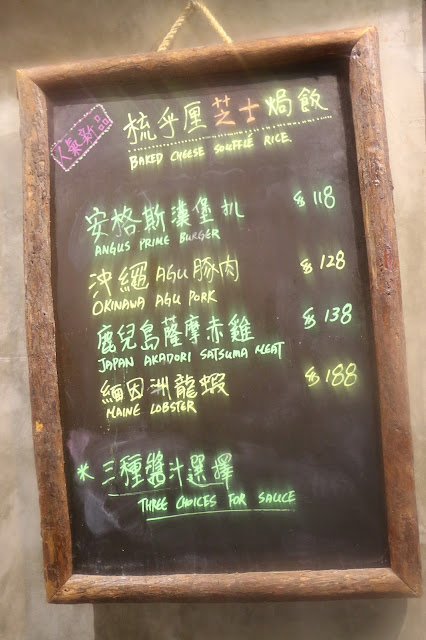 人氣新品
梳乎厘芝士焗飯
BAKED CHEESE SOUFFLÉ RICE.
安格斯漢堡扒 $118
ANGUS PRIME BURGER
沖繩AGU豚肉 $128
OKINAWA AGU PORK
鹿兒島薩摩赤雞 $138
JAPAN AKADORI SATSUMA MEAT
緬因洲龍蝦 $188
MAINE LOBSTER
* 三種醬汁選擇
THREE CHOICES FOR SAUCE